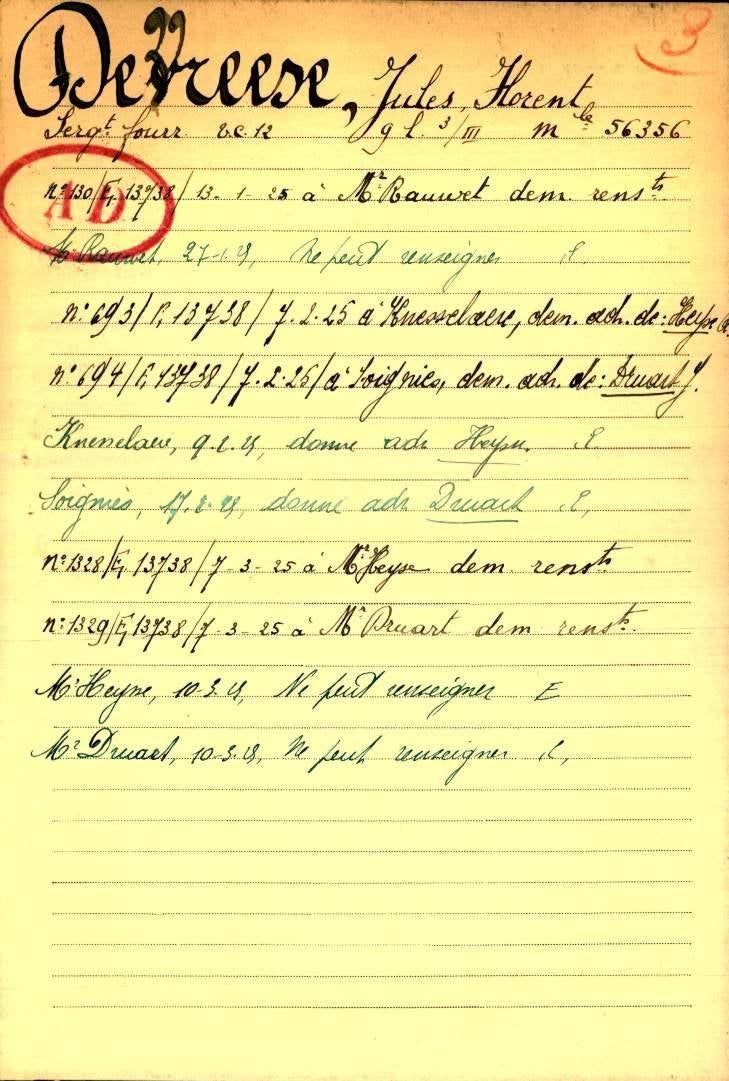 3
Devreese, Jules, Florent
Sergt fourr v.c. 12 9 l. 3/III mle 56356
AD
n° 130/E, 13738/ 13-1-25 à Mr Rauwet dem. renst.
Mr Rauwet, 27-1-25, Ne peut renseigner E.
n° 693/E, 13738/ 7.2.25 à Knesselaere, dem. adr. de: Heyse
n° 694/E, 13738/ 7.2.25/ à Soignies, dem. adr. de: Druart J.
Knesselaere, 9.2.25, donne adr Heyse. E
Soignies, 17.2.25, donne adr Druart E,
n° 1328/E, 13738/ 7-3-25 à Mr Heyse dem. rensts
n° 1329/E, 13738/ 7-3-25 à Mr Druart dem rensts.
Mr Heyse, 10-3.25, Ne peut renseigner E
Mr Druart, 10-3.25, Ne peut renseigner E,